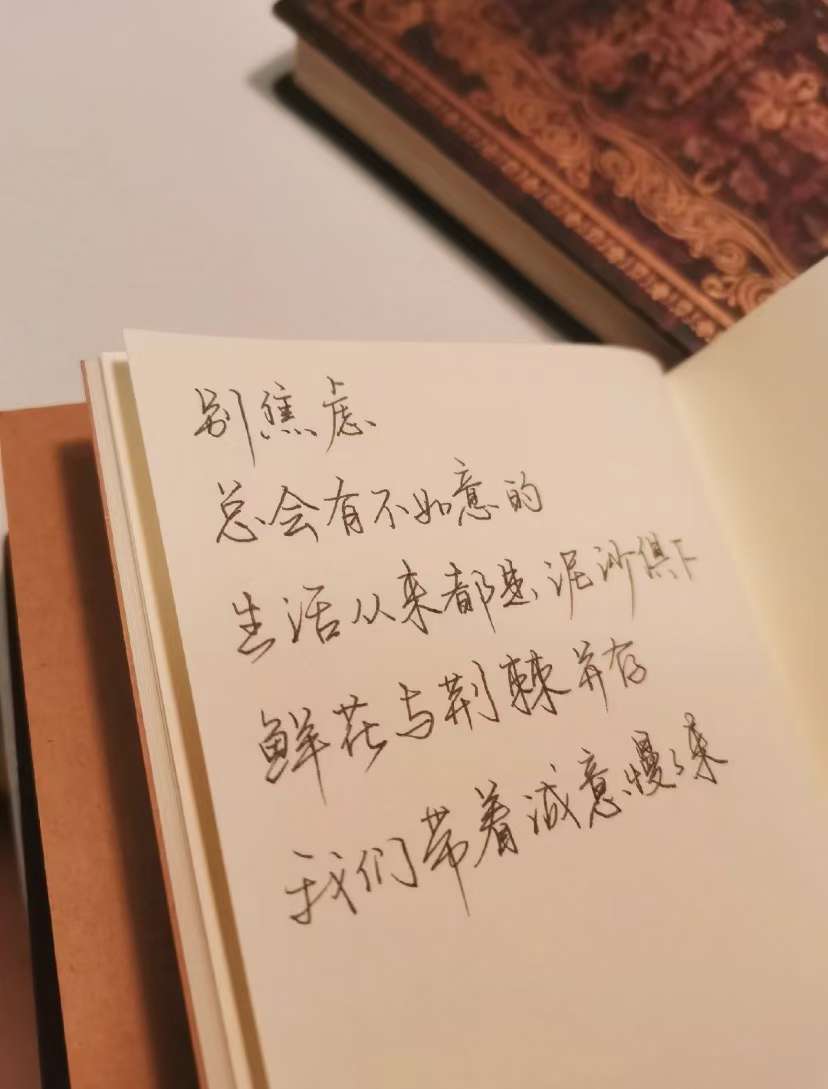 别焦虑
总会有不如意的
生活从来都是泥沙俱下
鲜花与荆棘并存
我们带着诚意慢慢来